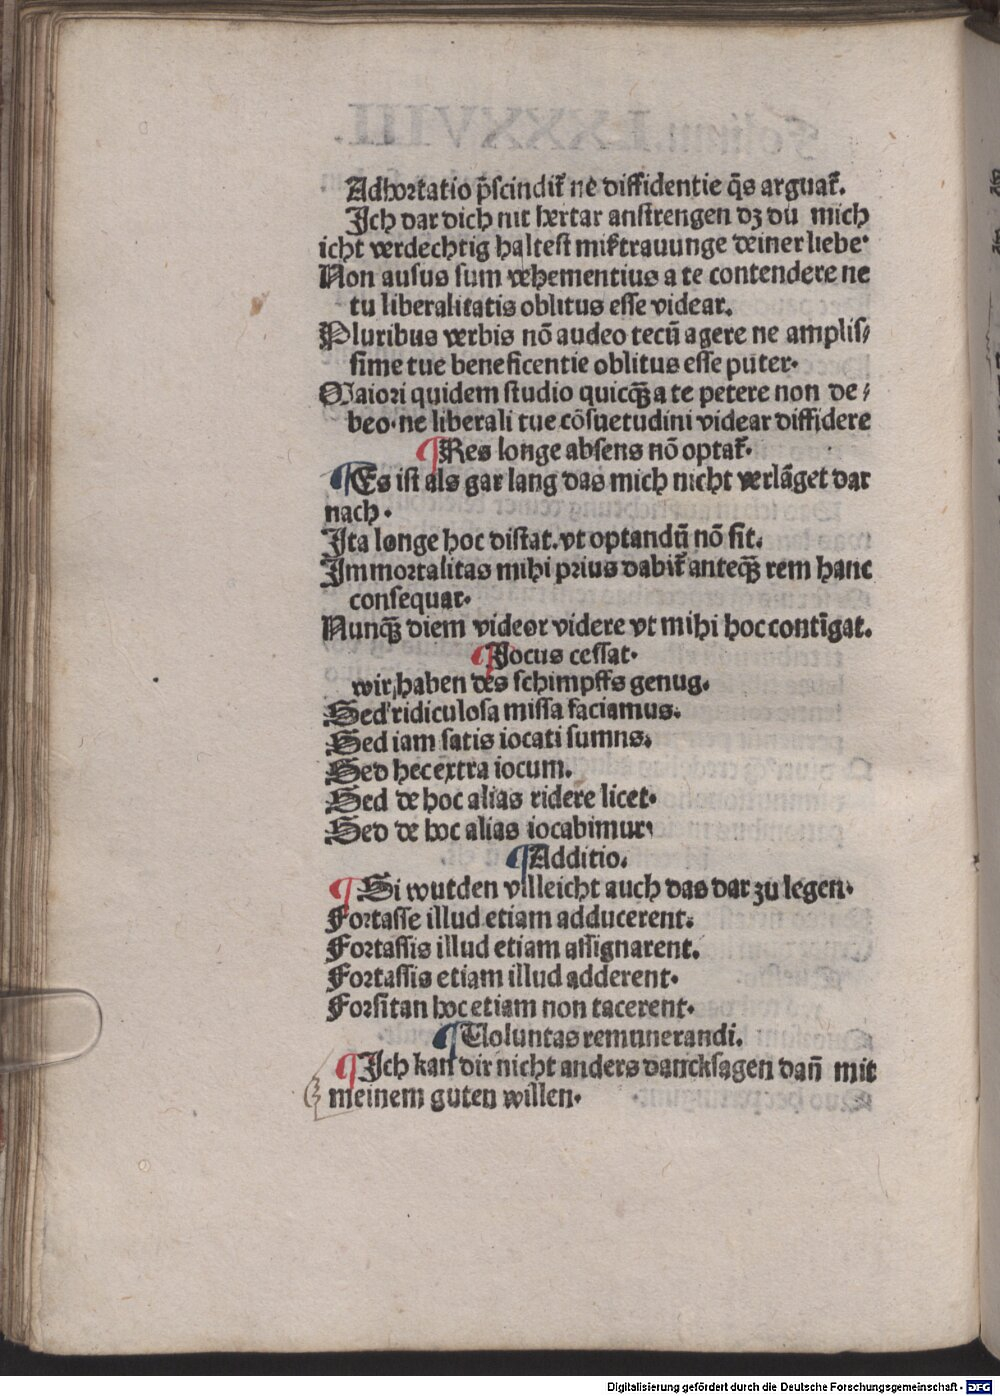 Adhortatio p̄scindit̃ ne diffidentie q̄s arguat̃.
Jch dar dich nit hertar anstrengen dʒ du mich
icht verdechtig haltest miſtrauunge deiner liebe·
Non ausus sum vehementius a te contendere ne
tu liberalitatis oblitus esse videar.
Pluribus verbis nō audeo tecū agere ne amplis⸗
sime tue beneficentie oblitus esse puter·
Maiori quidem studio quicq̄ȝ a te petere non de⸗
beo·ne liberali tue cōsuetudini videar diffidere
¶Res longe absens nō optat̃·
¶Es ist als gar lang das mich nicht verlāget dar
nach·
Jta longe hoc distat.vt optandū nō sit.
Jmmortalitas mihi prius dabit̃ anteq̄ȝ rem hanc
consequar·
Nunq̄ȝ diem videor videre vt mihi hoc contīgat.
¶Jocus cessat·
wir haben des schimpffs genug.
Sed ridiculosa missa faciamus.
Sed iam satis iocati sumns.
Sed hec extra iocum.
Sed de hoc alias ridere licet·
Sed de hoc alias iocabimur·
¶Additio.
¶Si wutden villeicht auch das dar zu legen·
Fortasse illud etiam adducerent.
Fortassis illud etiam assignarent.
Fortassis etiam illud adderent·
Forsitan hoc etiam non tacerent·
¶Uoluntas remunerandi.
¶Jch kan dir nicht anders dancksagen dañ mit
meinem guten willen·
Digitalisierung gefördert durch die Deutsche Forschungsgemeinschaft - DFG